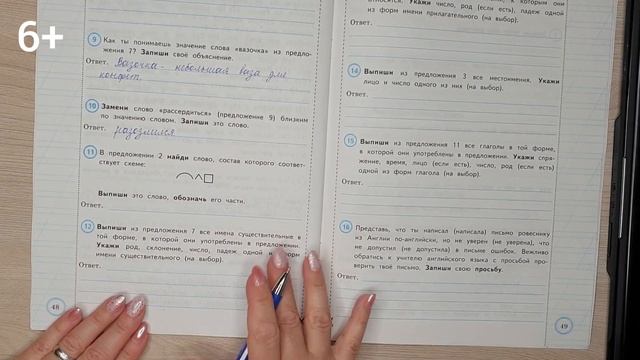 6+
9 Как ты понимаешь значение слова «вазочка» из предло-
жения 7? Запиши своё объяснение.
Ответ. Вазочка - небольшая ваза для
конфет.
10 Замени слово «рассердиться» (предложение 9) близким
по значению словом. Запиши это слово.
Ответ. разозлился
11 В предложении 2 найди слово, состав которого соответ-
ствует схеме:
Выпиши это слово, обозначь его части.
Ответ.
12 Выпиши из предложения 7 все имена существительные в
той форме, в которой они употреблены в предложении.
Укажи род, склонение, число, падеж одной из форм
имени существительного (на выбор).
Ответ.
48
к которым они
относятся. Укажи число, род (если есть), падеж одной
из форм имени прилагательного (на выбор).
Ответ.
14 Выпиши из предложения 3 все местоимения. Укажи
лицо и число одного из них (на выбор).
Ответ.
15 Выпиши из предложения 11 все глаголы в той форме,
в которой они употреблены в предложении. Укажи спря-
жение, время, лицо (если есть), число, род (если есть)
одной из форм глагола (на выбор).
Ответ.
16 Представь, что ты написал (написала) письмо ровеснику
из Англии по-английски, но не уверен (не уверена), что
не допустил (не допустила) в письме ошибок. Вежливо
обратись к учителю английского языка с просьбой про-
верить твоё письмо. Запиши свою просьбу.
Ответ.
49